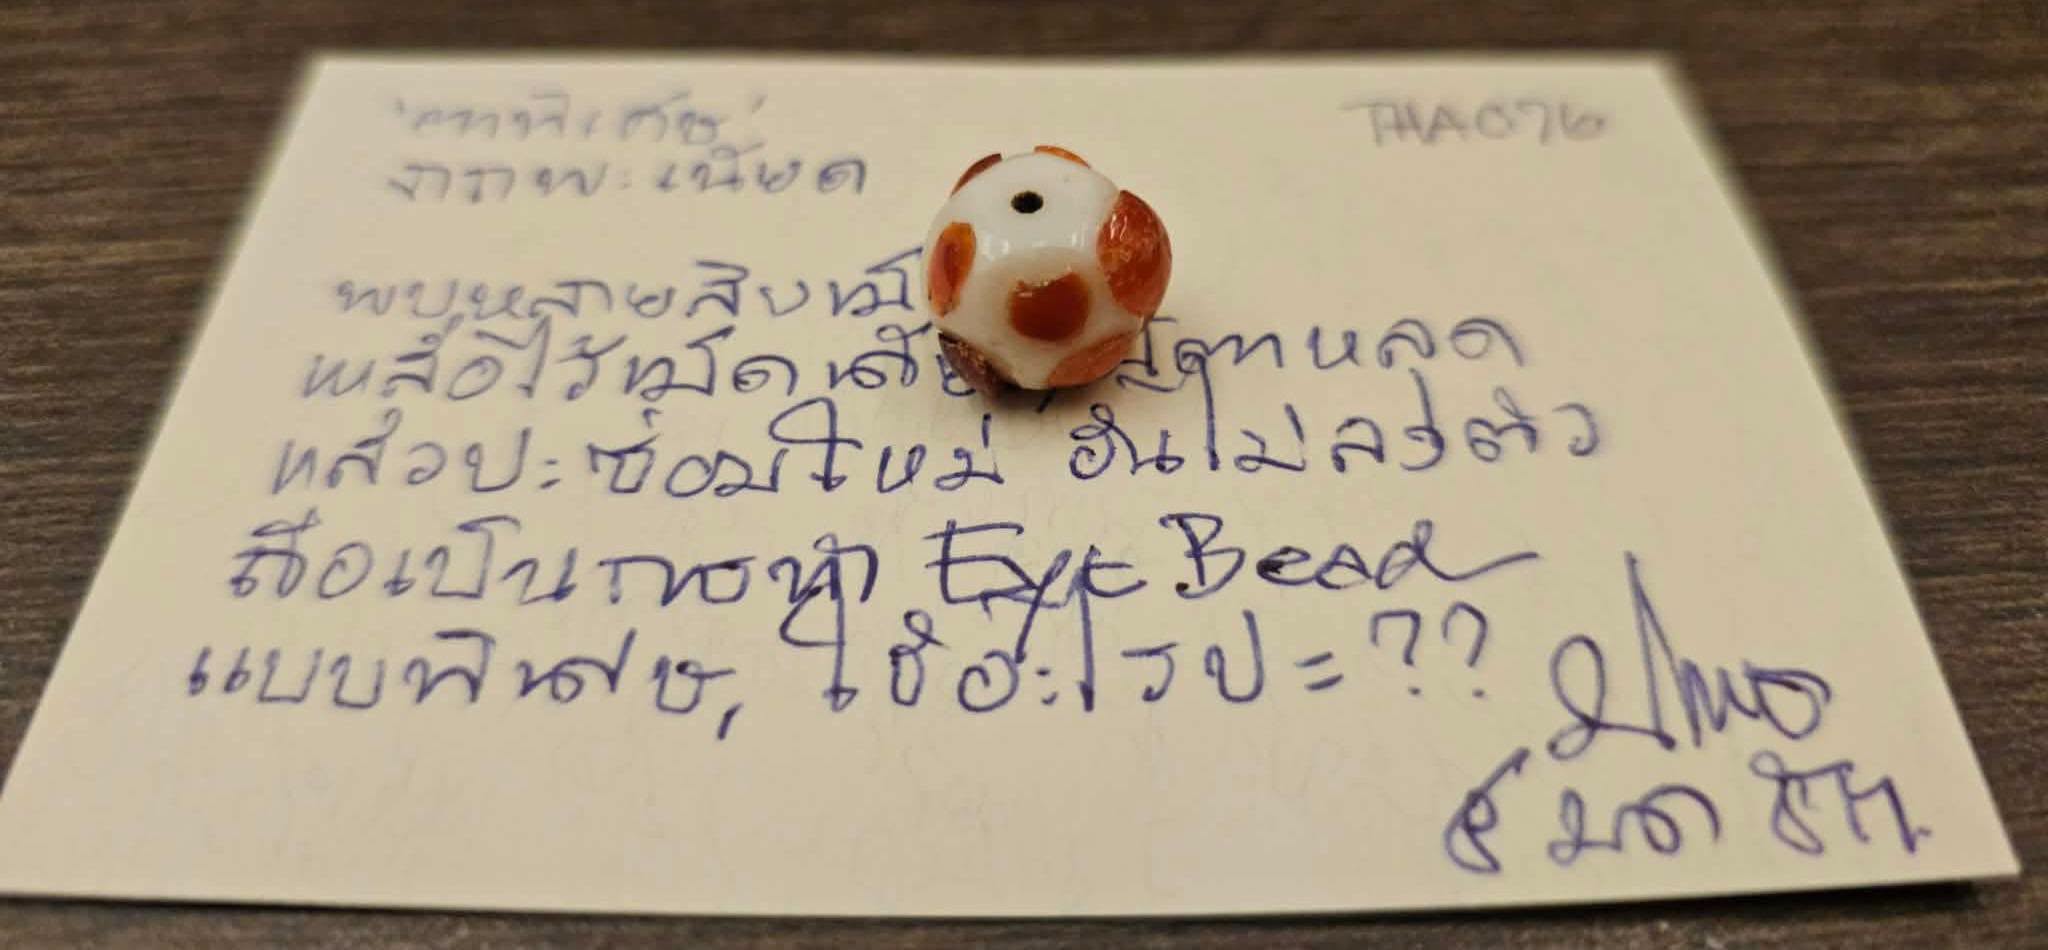 'ตาพิเศษ' THA076
จาก พะเนียด
พบหลายสิบเม็
เหลือไว้เม็ดเดีย ตาหลุด
แล้วปะซ่อมใหม่ อันไม่ลงตัว
ถือเป็นการทำ Eye Bead
แบบพิเศษ, ใช้อะไรปะ??